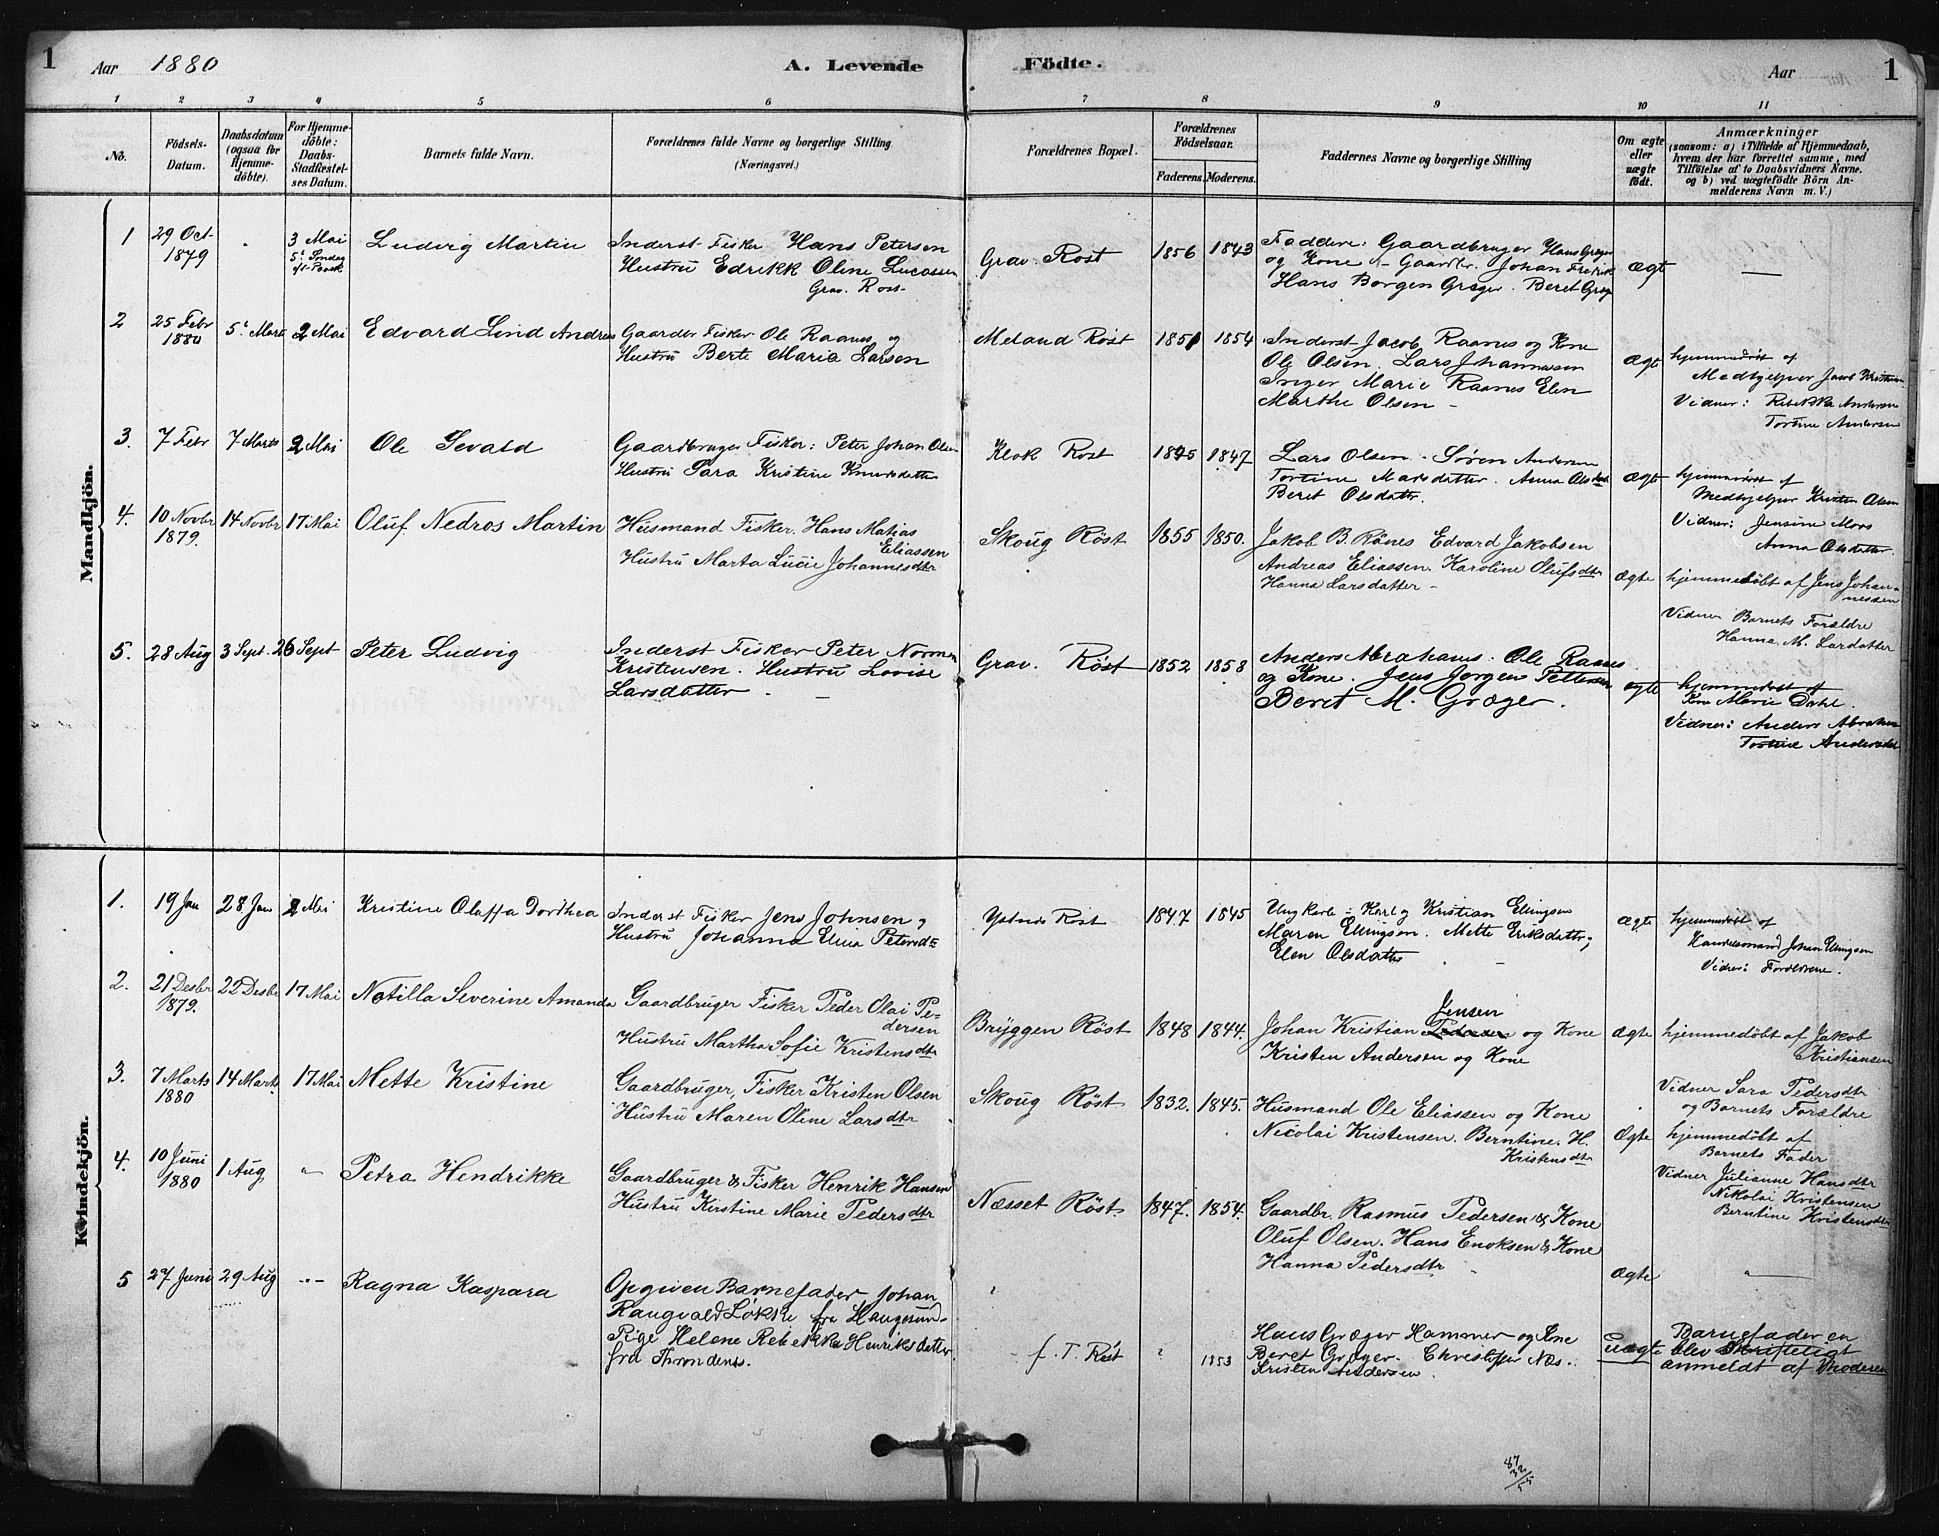 1 Aar 1880 A. Levende Födte. Aar 1
1 2 3 4 5 6 7 8 9 10 11
No.
Födsels-
Datum.
Daabsdatum
(ogsaa for
Hjemme-
döbte).
For Hjemme-
döbte:
Daabs-
Stadfæstel-
ses Datum.
Barnets fulde Navn.
Forældrenes fulde Navne og borgerlige Stilling.
(Næringsvei.)
Forældrenes Bopæl.
Forældrenes
Födselsaar.
Faderens. Moderens.
Faddernes Navne og borgerlige Stilling
Om ægte
eller
uægte
födt.
Anmærkninger
(saasom: a) i Tilfælde af Hjemmedaab,
hvem der har forrettet samme, med
Tilföielse af to Daabsvidners Navne.
og b) ved uægtefödte Börn An-
melderens Navn m. V.)
Mandkjön.
1 29 Oct 1879
3 Mai
5te Søndag
eft. Paask
Ludvig Martin
Inderst Fisker Hans Petersen
Hustru Edrikk Oline Lucassen
Grav. Røst
Grav. Röst 1856 1843
Faddere: Gaardbruger Hans Græger
og Kone Gaardbr. Johan Fredrik
Hans Borgen Græger. Beret Græg
Ægt —
2 25 Febr 1880 5te Marts 2 Mai
Edvard Lind Andreas
Gaardbr Fisker Ole Raanes og
Hustru Berte Maria Larsen
Meland Röst 1851 1854
Inderst Jacob Raanes og Kone
Ole Olsen. Lars Johannessen
Inger Marie Raanes Elen
Marthe Olsen –
ægt
hjemmedöbt af
Medhjelper Jacob Kristiansen
Vidner: Rebekka Andersen
Tortine Andersen
3. 7 Febr 7 Marts 2 Mai
Ole Sevald
Gaardbruger Fisker: Peter Johan Olsen
Hustru Sara Kristine Knudsdatter
Klok Röst 1845 1847
Lars Olsen. Søren Andersen
Tortine Marsdatter. Anna Olsdat
Beret Olsdatter.
ægt
hjemmedöbt af
Medhjelper Kristen Olsen
Vidner: Jensine Mors
Anna Olsdatter.
4. 10 Novbr 1879. 14 Novbr 17 Mai
Oluf Nedros Martin
Husmand Fisker. Hans Matias
Eliassen
Hustru Marta Lucie Johannesdtr
Skoug Röst 1855 1850.
Jakob B. Rånes Edvard Jakobsen
Andreas Eliassen. Karoline Olufsdtr
Hanna Larsdatter –
ægte
hjemmedöbt af Jens Johan-
nessen
Vidner Barnets Forældre
Hanna M. Larsdatter
5. 28 Aug 3 Sept. 26 Sept
Peter Ludvig
Inderst Fisker Peter Normen
Kristensen. Hustru Lovise
Larsdatter. –
Grav. Röst 1852 1858
Anders Abrahams. Ole Raanes
og Kone. Jens Jørgen Pettersen
Beret M. Græger.
ægte
hjemmedöbt af
Kone Marie Dahl.
Vidner: Anders Abraham
Tortine Andersdat
Kvindekjön.
1. 19 Jan 28 Jan 2 Mai
Kristine Olaffa Dorthea
Inderst Fisker Jens Johnsen og
Hustru Johanna Elina Petersdtr
Ystnes Röst 1847 1845
Ung Karle: Karl og Kristian Ellingsen
Maren Ellingsen. Mette Eriksdatter,
Elen Olsdatter –
ægte
hjemmedöbt af
Handelsmand Johan Ellingsen
Vidner: Forældrene.
2. 21 Desbr 1879. 22 Desbr 17 Mai
Notilla Severine Amanda
Gaardbruger Fisker Peder Olai Pe-
dersen
Hustru Martha Sofie Kristensdtr
Bryggen Röst 1848 1844.
Jensen
Johan Kristian Pedersen og Kone
Kristen Andersen og Kone
ægte
hjemmedöbt af Jakob
Kristiansen
Vidner Sara Pedersdtr
og Barnets Forældre
3. 7 Marts 1880 14 Marts 17 Mai
Mette Kristine
Gaardbruger, Fisker Kristen Olsen
Hustru Maren Oline Larsdtr
Skoug Röst 1832. 1845.
Husmand Ole Eliassen og Kone
Nicolai Kristensen. Berntine. H.
Kristensdtr
Ægte
hjemmedöbt af
Barnets Fader
Vidner Julianne Hansdtr
Nikolai Kristensen
Berntine Kristensdtr
4. 10 Juni 1880 1 Aug –"–
Petra Hendrikke
Gaardbruger & Fisker Henrik Hansen
Hustru Kirstine Marie Pedersdtr
Næsset Röst 1847. 1854.
Gaardbr. Rasmus Pedersen & Kone
Oluf Olsen. Hans Enoksen & Kone
Hanna Pedersdtr
Ægte –"–
5 27 Juni 29 Aug –"–
Ragna Kaspara
Opgiven Barnefader Johan
Rangvald Løkke fra Haugesund
Pige Helene Rebekka Henriksdatter
fra Throndenes.
f. T. Röst 1853
Hans Græger Hammer og Kone
Beret Græger. Christoffer Næs.
Kristen Andersen.
Uægte
Barnefader en
blev Skriftligt
anmeldt af Moderen
87
32
55